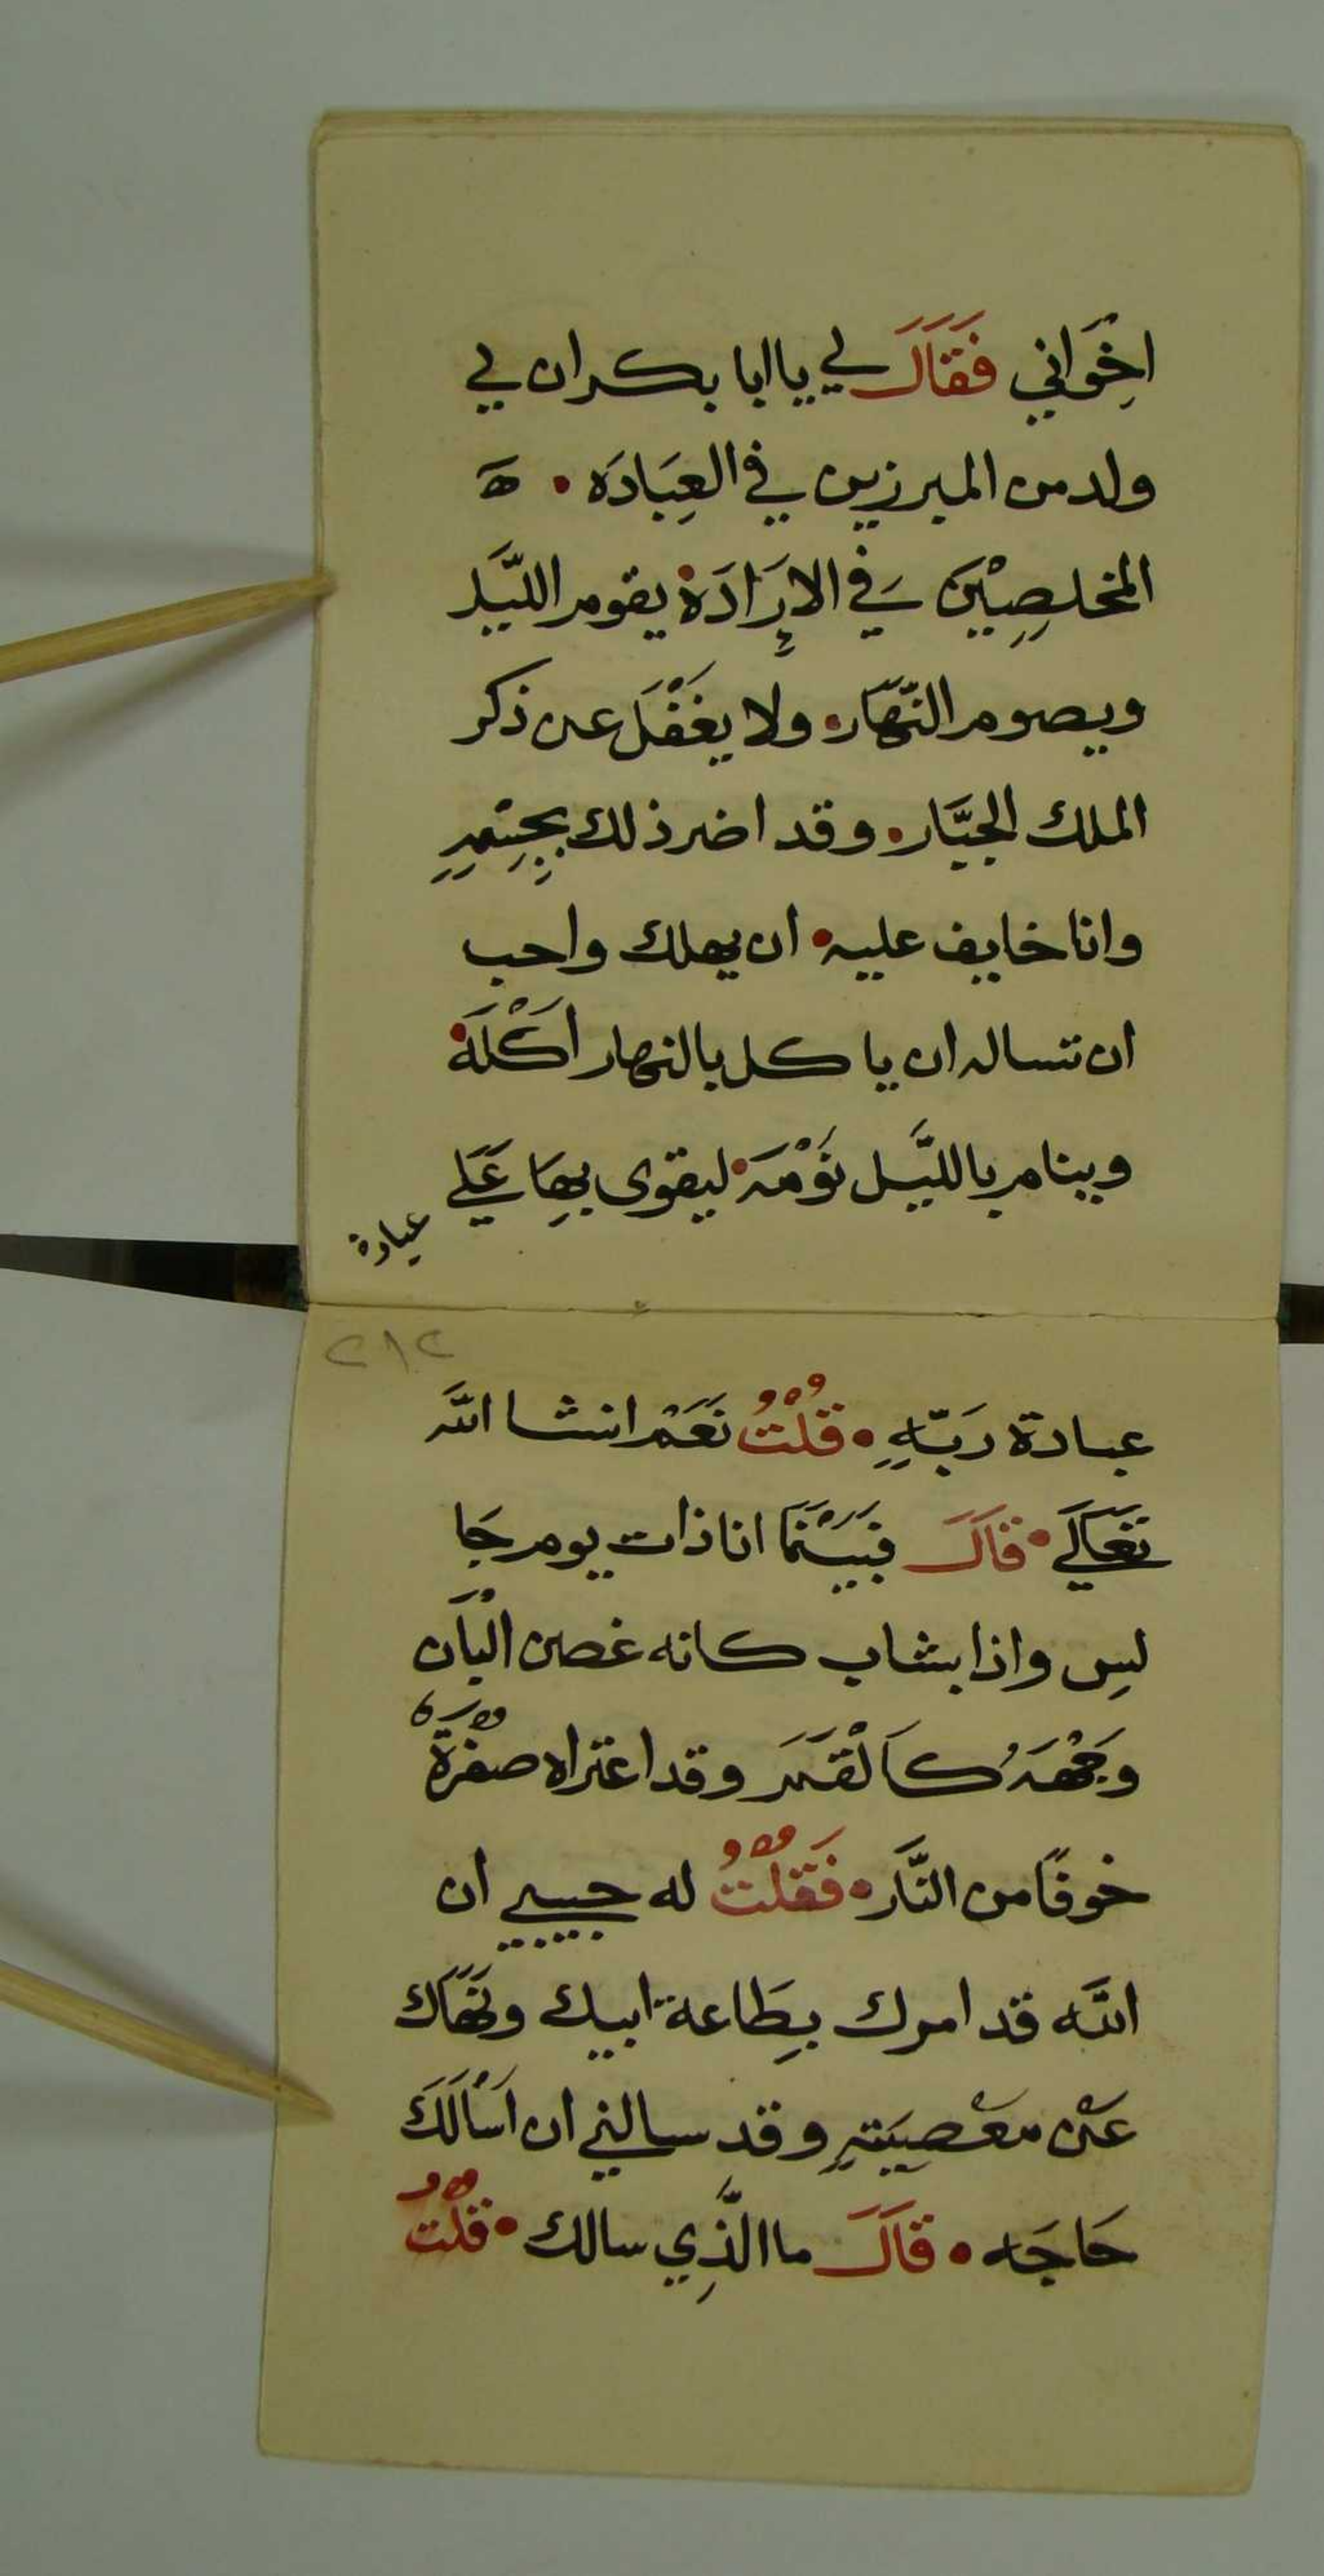 اخِوَاني فَقَالَ لي يا ابا بكر ان لي
ولد من المبرزين في العِبَادَه • ه
المخلصِيْنَ في الارَادَة يقوم الليَّل
ويصوم النَّهَار • ولا يغَفْلَ عن ذكر
الملك الجبَّار • وقد اضر ذلك بجِسْمِهِ
وانا خايف عليه • ان يهلك واحب
ان تساله ان ياكل بالنهار اَكْلَة
وينام بالليَّل نَوْمَة • ليقوى بهَِا عَلي
عبادة
٢١٢
عبادة رَبّهِِ • قُلْتُ نَعَمْ انشا الله
تَعَالَي • قَالَ فَبَيْنَمَا انا ذات يوم جَا
لسِ واذا بشاب كانه غصن الْبَان
وَجْهَهُ كَالْقَمَر وقد اعتراه صفُرْةَ
خوفًا من النَّار • فَقلْتُ له حبيبي ان
الله قد امرك بطِاعة ابيك ونَهَاك
عَنْ معْصِيَتهِ وقد سالني ان اَسْالَكَ
حَاجَه • قَالَ ما الَّذِي سالك • قُلْتُ